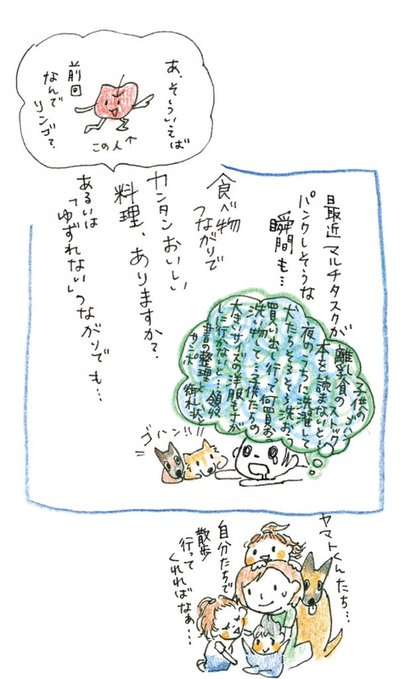 あ、そういえば
前回
なんで
リンゴ？
この人↑
最近マルチタスクが
パンクしそうな
瞬間も…
食べ物
つながりで
カンタンおいしい
料理、ありますか？
あるいは
「ゆずれない」つながりでも…
子供の
離乳食のストック
本を読まないと
夜のうちに洗濯して
犬たちそろそろ洗お
買い出し行って何買お
洗い物して…
大きいサイズの洋服
に行かないと…
書の整理
御礼状
ゴハン!!
ヤマトくんたち…
自分たちで
散歩
行って
くれればなぁ…